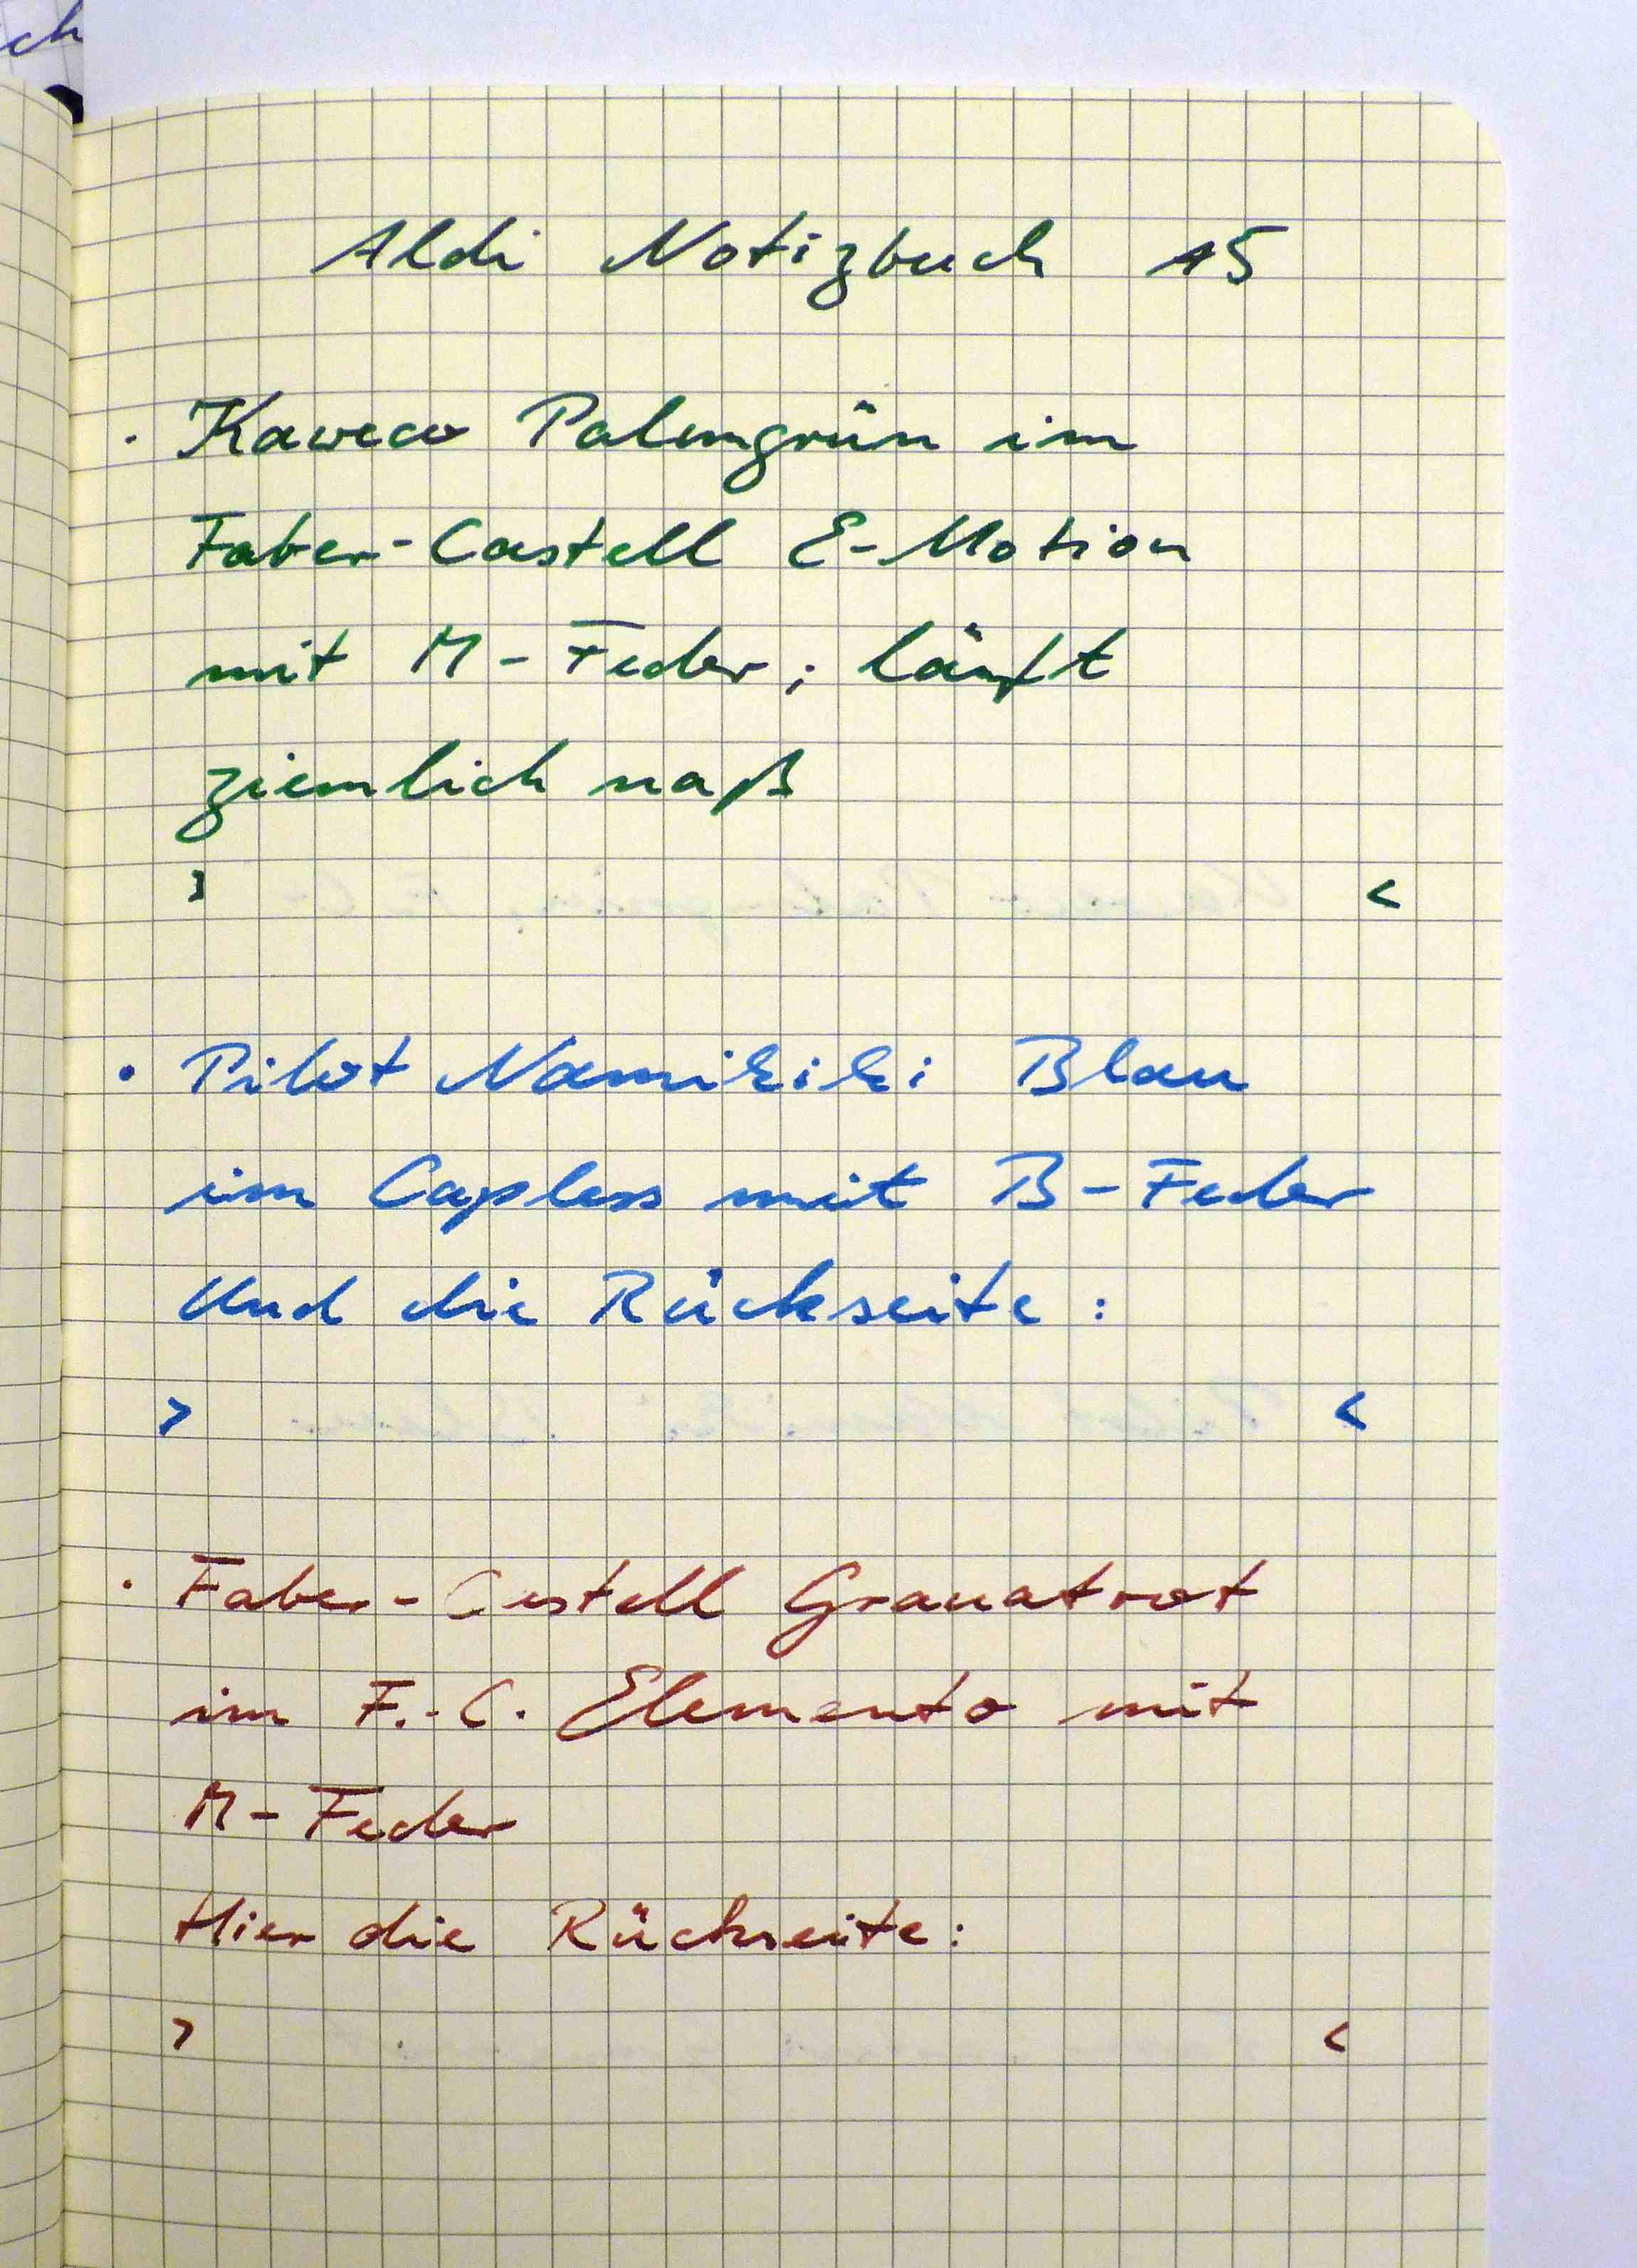 ch
Aldi Notizbuch 15
· Kaweco Palmgrün im
Faber-Castell E-Motion
mit M-Feder; läuft
ziemlich naß
> <
· Pilot Namikiki Blau
im Capless mit B-Feder
Und die Rückseite:
> <
· Faber-Castell Granatrot
im F.-C. Elemento mit
M-Feder
Hier die Rückseite:
> <